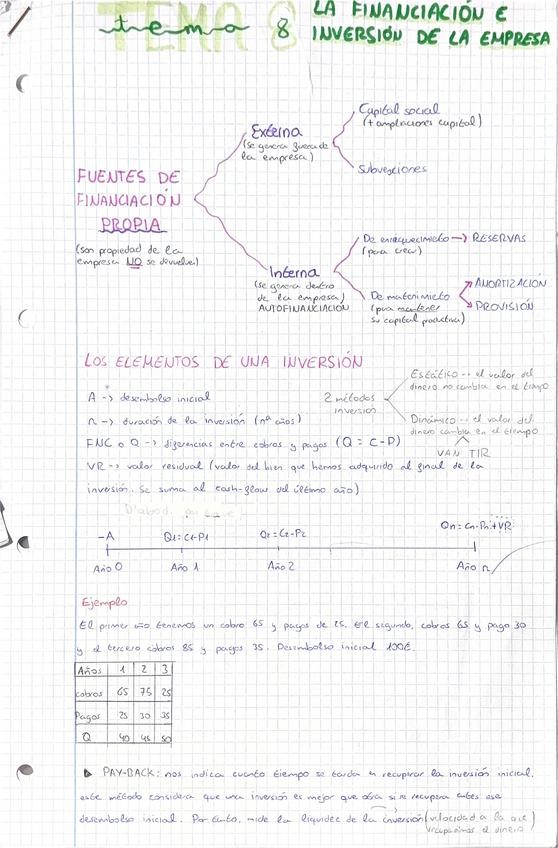 tema 8 LA FINANCIACIÓN E
INVERSIÓN DE LA EMPRESA
FUENTES DE
FINANCIACIÓN
PROPIA
(son propiedad de la
empresa NO se devuelve)
Externa
(se genera fuera de
la empresa)
Capital social
(+ ampliaciones capital)
Subvenciones
Interna
(se genera dentro
de la empresa)
AUTOFINANCIACIÓN
De enriquecimiento → RESERVAS
(para crecer)
De mantenimiento
(para mantener
su capital productivo)
AMORTIZACIÓN
PROVISIÓN
LOS ELEMENTOS DE UNA INVERSIÓN
A -> desembolso inicial
n -> duración de la inversión (nº años)
FNC o Q -> diferencias entre cobros y pagos (Q = C-P)
VR -> valor residual (valor del bien que hemos adquirido al final de la
inversión. Se suma al cash-flow del último año)
2 métodos
inversión
Estático -- el valor del
dinero no cambia en el tiempo
Dinámico -- el valor del
dinero cambia en el tiempo
VAN TIR
-A Q1=C1-P1 Q2=C2-P2 Qn=Cn-Pn+VR
Año 0 Año 1 Año 2 Año n
Ejemplo
El primer año tenemos un cobro 65 y pagos de 25. El segundo, cobros 65 y pago 30
y el tercero cobros 85 y pagos 35. Desembolso inicial 100€.
Años 1 2 3
cobros 65 75 25
Pagos 25 30 35
Q 40 45 50
PAY-BACK: nos indica cuanto tiempo se tarda en recuperar la inversión inicial.
este método considera que una inversión es mejor que otra si se recupera antes ese
desembolso inicial. Por tanto, mide la liquidez de la inversión (velocidad a la que
recuperamos el dinero)